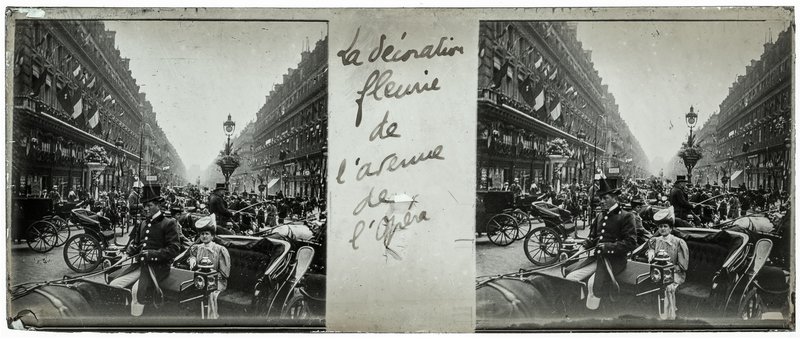 La décoration
fleurie
de
l'avenue
de
l'Opéra